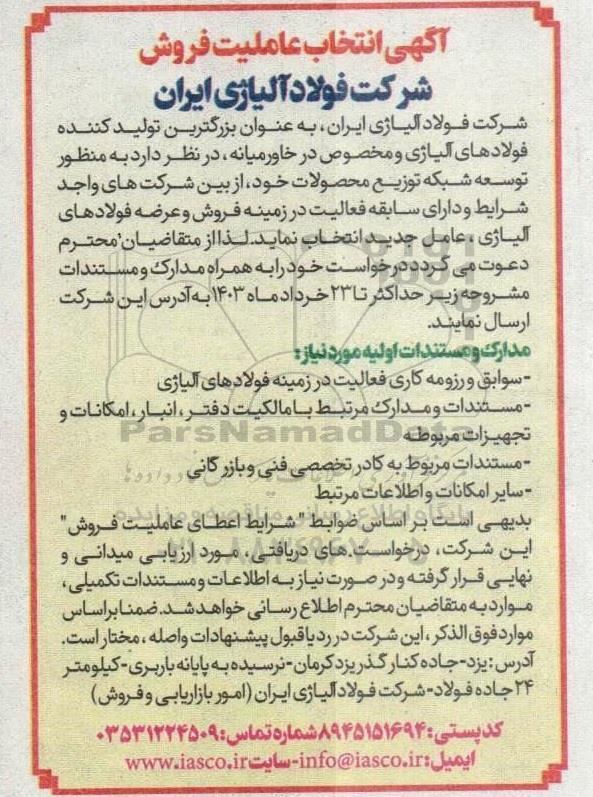 آگهی انتخاب عاملیت فروش
شرکت فولاد آلیاژی ایران
شرکت فولاد آلیاژی ایران، به عنوان بزرگترین تولید کننده
فولادهای آلیاژی و مخصوص در خاورمیانه، در نظر دارد به منظور
توسعه شبکه توزیع محصولات خود، از بین شرکت های واجد
شرایط و دارای سابقه فعالیت در زمینه فروش و عرضه فولادهای
آلیاژی، عامل جدید انتخاب نماید. لذا از متقاضیان محترم
دعوت می گردد درخواست خود را به همراه مدارک و مستندات
مشروحه زیر حداکثر تا ۲۳ خرداد ماه ۱۴۰۳ به آدرس این شرکت
ارسال نمایند.
مدارک و مستندات اولیه مورد نیاز:
-سوابق و رزومه کاری فعالیت در زمینه فولادهای آلیاژی
-مستندات و مدارک مرتبط با مالکیت دفتر، انبار، امکانات و
تجهیزات مربوطه
ParsNamadData
-مستندات مربوط به کادر تخصصی فنی و بازرگانی
-سایر امکانات و اطلاعات مرتبط
پایگاه اطلاع رسانی مناقصه و مزایده
بدیهی است بر اساس ضوابط "شرایط اعطای عاملیت فروش"
این شرکت، درخواست های دریافتی، مورد ارزیابی میدانی و
نهایی قرار گرفته و در صورت نیاز به اطلاعات و مستندات تکمیلی،
موارد به متقاضیان محترم اطلاع رسانی خواهد شد. ضمنا براساس
موارد فوق الذکر، این شرکت در رد یا قبول پیشنهادات واصله، مختار است.
آدرس: یزد-جاده کنار گذر یزد کرمان-نرسیده به پایانه باربری-کیلومتر
۲۴ جاده فولاد-شرکت فولاد آلیاژی ایران (امور بازاریابی و فروش)
کد پستی: ۸۹۴۵۱۵۱۶۹۴ شماره تماس: ۰۳۵۳۱۲۲۴۵۰۹
ایمیل: info@iasco.ir-سایت www.iasco.ir